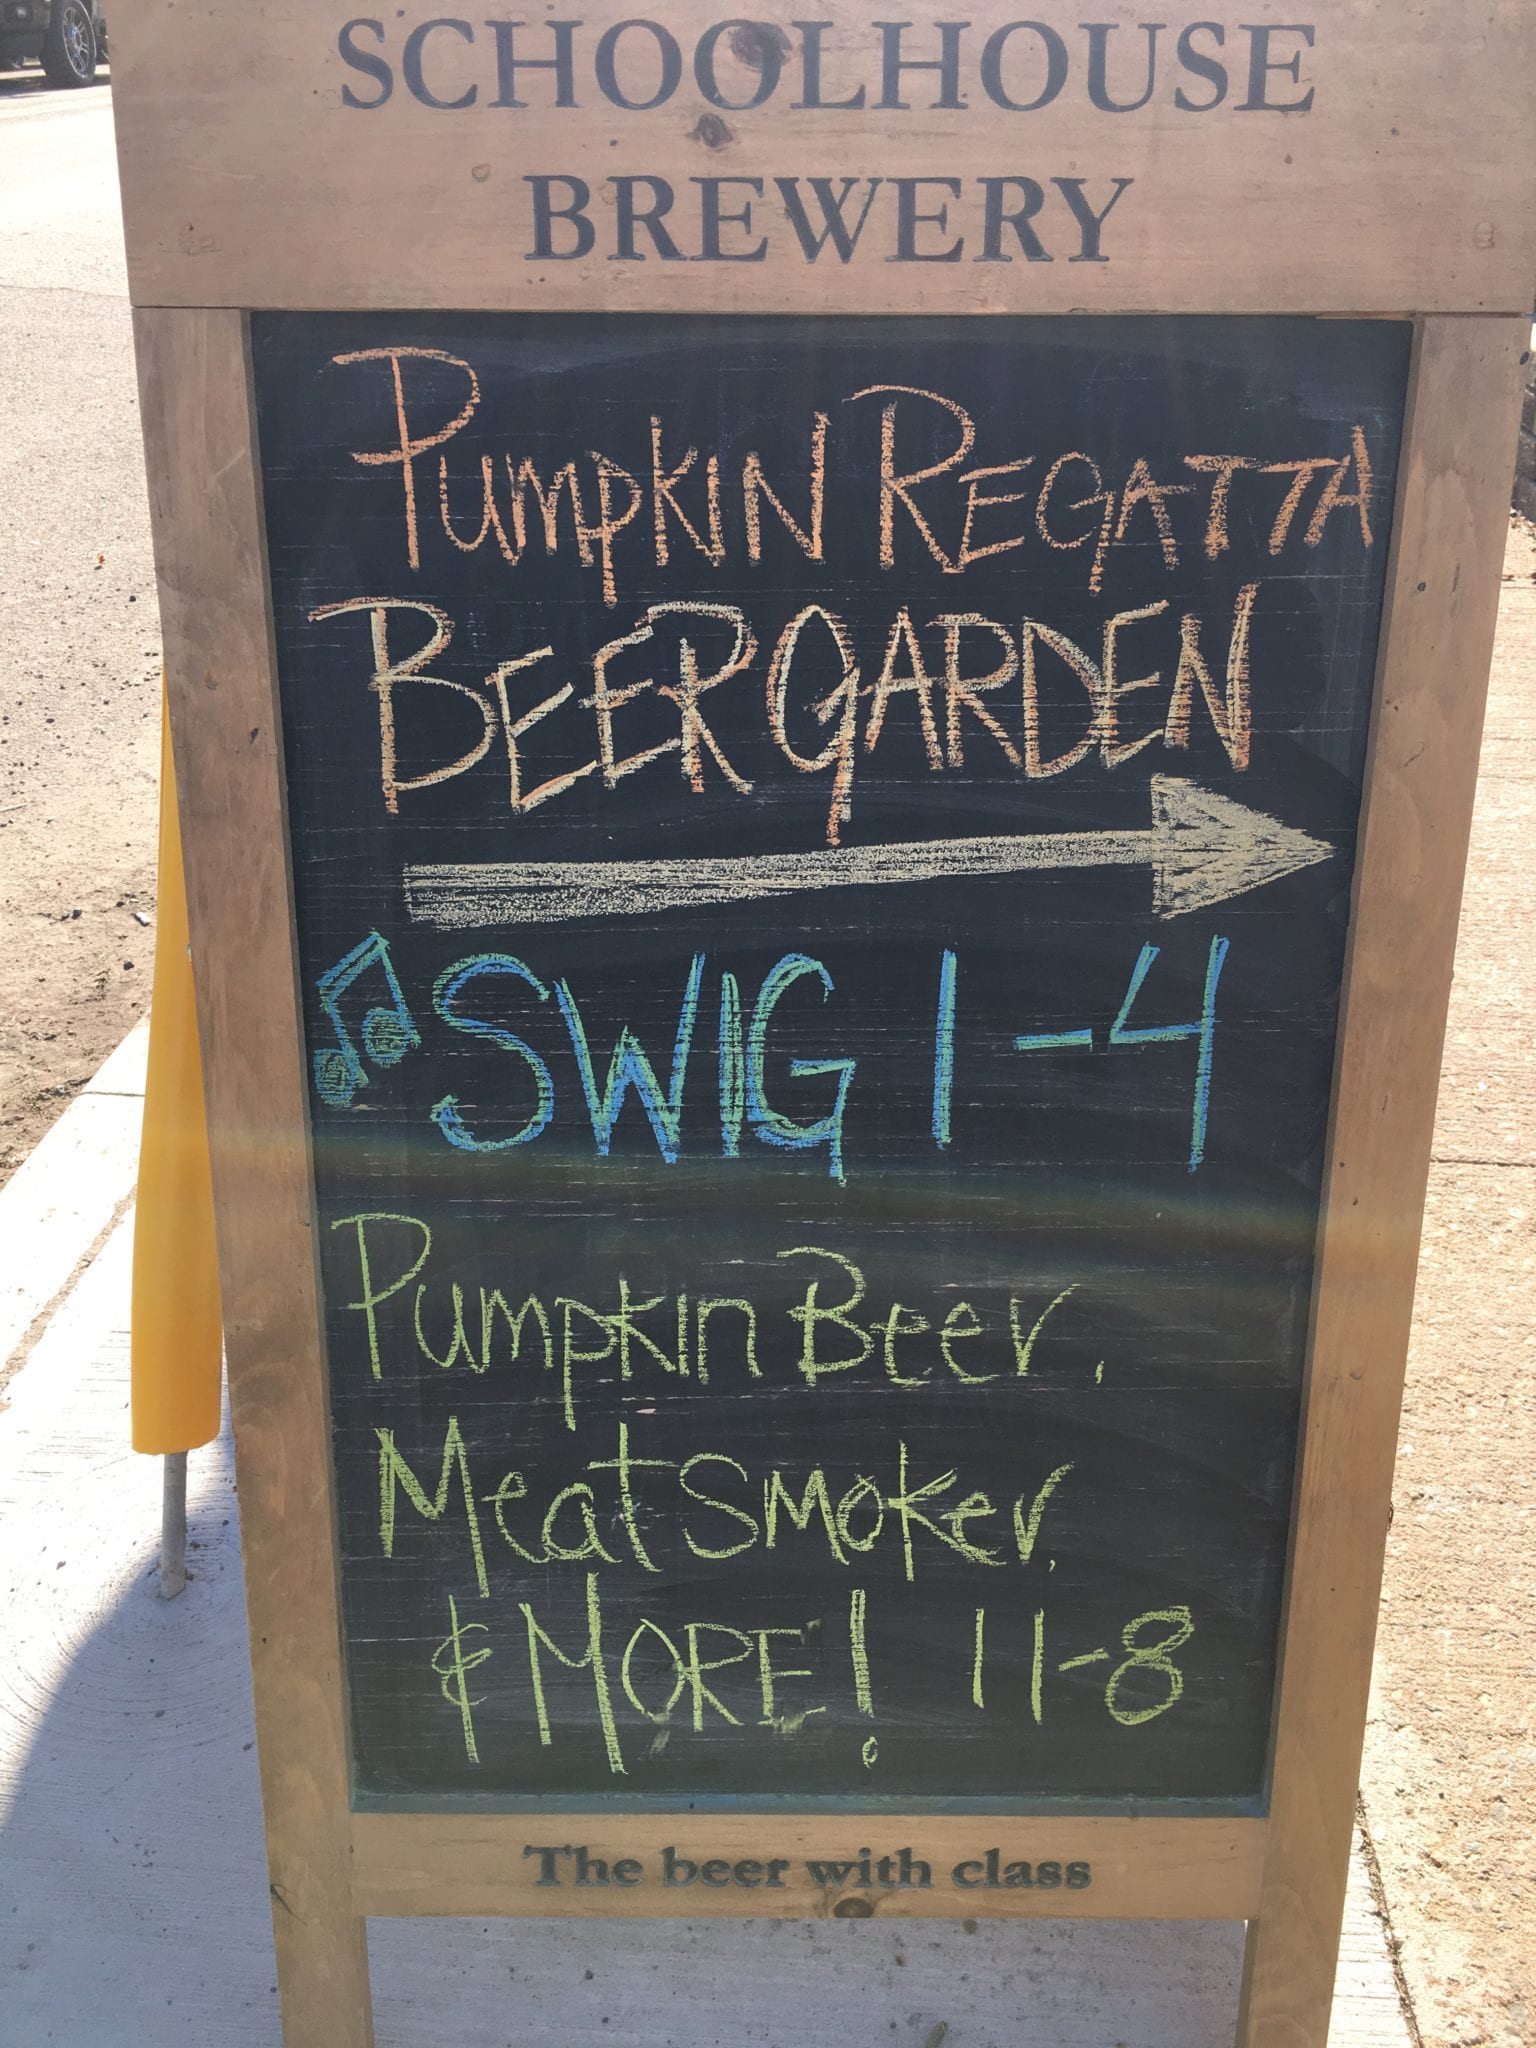 SCHOOLHOUSE
BREWERY
PUMPKIN REGATTA
BEER GARDEN
SWIG 1-4
Pumpkin Beer,
Meat Smoker,
& MORE! 11-8
The beer with class